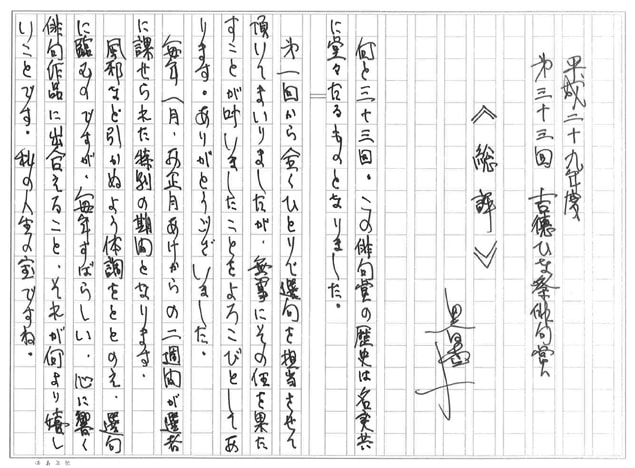 平成二十九年度
第三十三回 吉德ひな祭俳句賞
《総評》
何と三十三回。この俳句賞の歴史は名実共
に堂々たるものとなりました。
第一回から全くひとりで選句を担当させて
頂いてまいりましたが、無事にその任を果た
すことが叶いましたことをよろこびとしてあ
ります。ありがとうございました。
毎年一月、お正月あけからの二週間が選者
に課せられた特別の期間となります。
風邪など引かぬよう体調をととのえ、選句
に臨むのですが、毎年すばらしい、心に響く
俳句作品に出合えること、それが何より嬉し
いことです。私の人生の宝ですね。